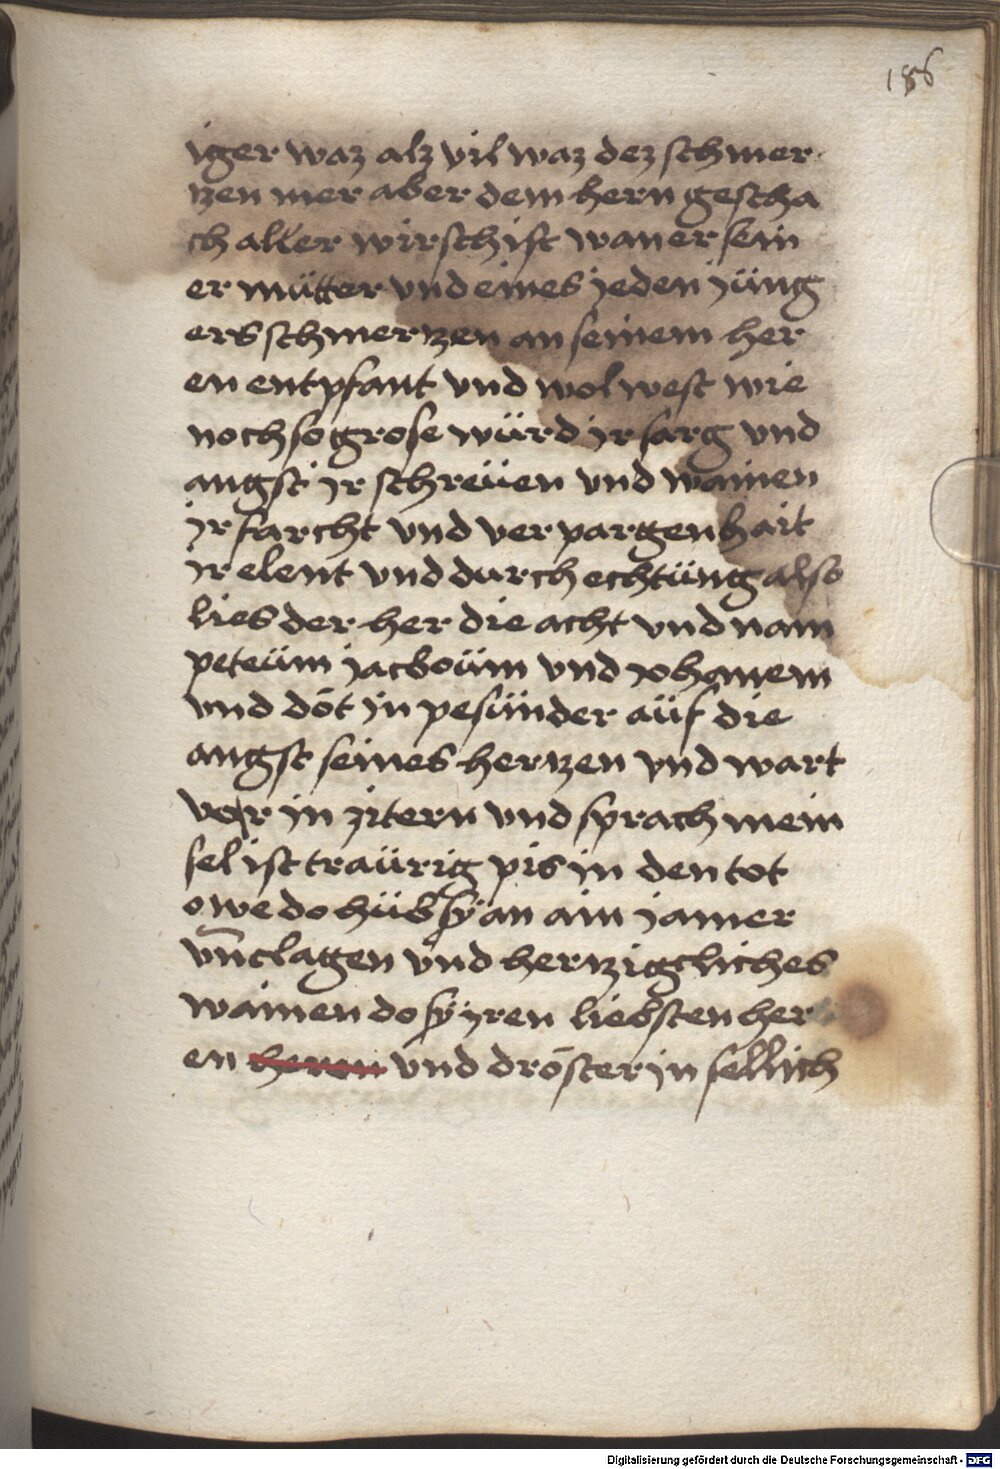 186
iger waz alz vil waz dez schmer
tzen mer aber dem hern gescha
ch aller wirschist wan er sein
er mütter vnd eines jeden jüng
ers schmertzen an seinem her
en entpfant vnd wol west wie
noch so grose würd jr sarg vnd
angst jr schreüen vnd wainen
jr farcht vnd verpargenhait
jr elent vnd durchechtüng also
lies der her die acht vnd nam
peteüm jacboüm vnd johannem
vnd dōt jn pesünder aüf die
angst seines hertzen vnd wart
vor jn zitern vnd sprach mein
sel ist traürig pis jn den tot
owe do hüb sÿ an ain jamer
vn̄ clagen vnd hertzigcliches
wainen do sÿ jren liebsten her
en heren vnd dröster jn sellich
Digitalisierung gefördert durch die Deutsche Forschungsgemeinschaft - DFG